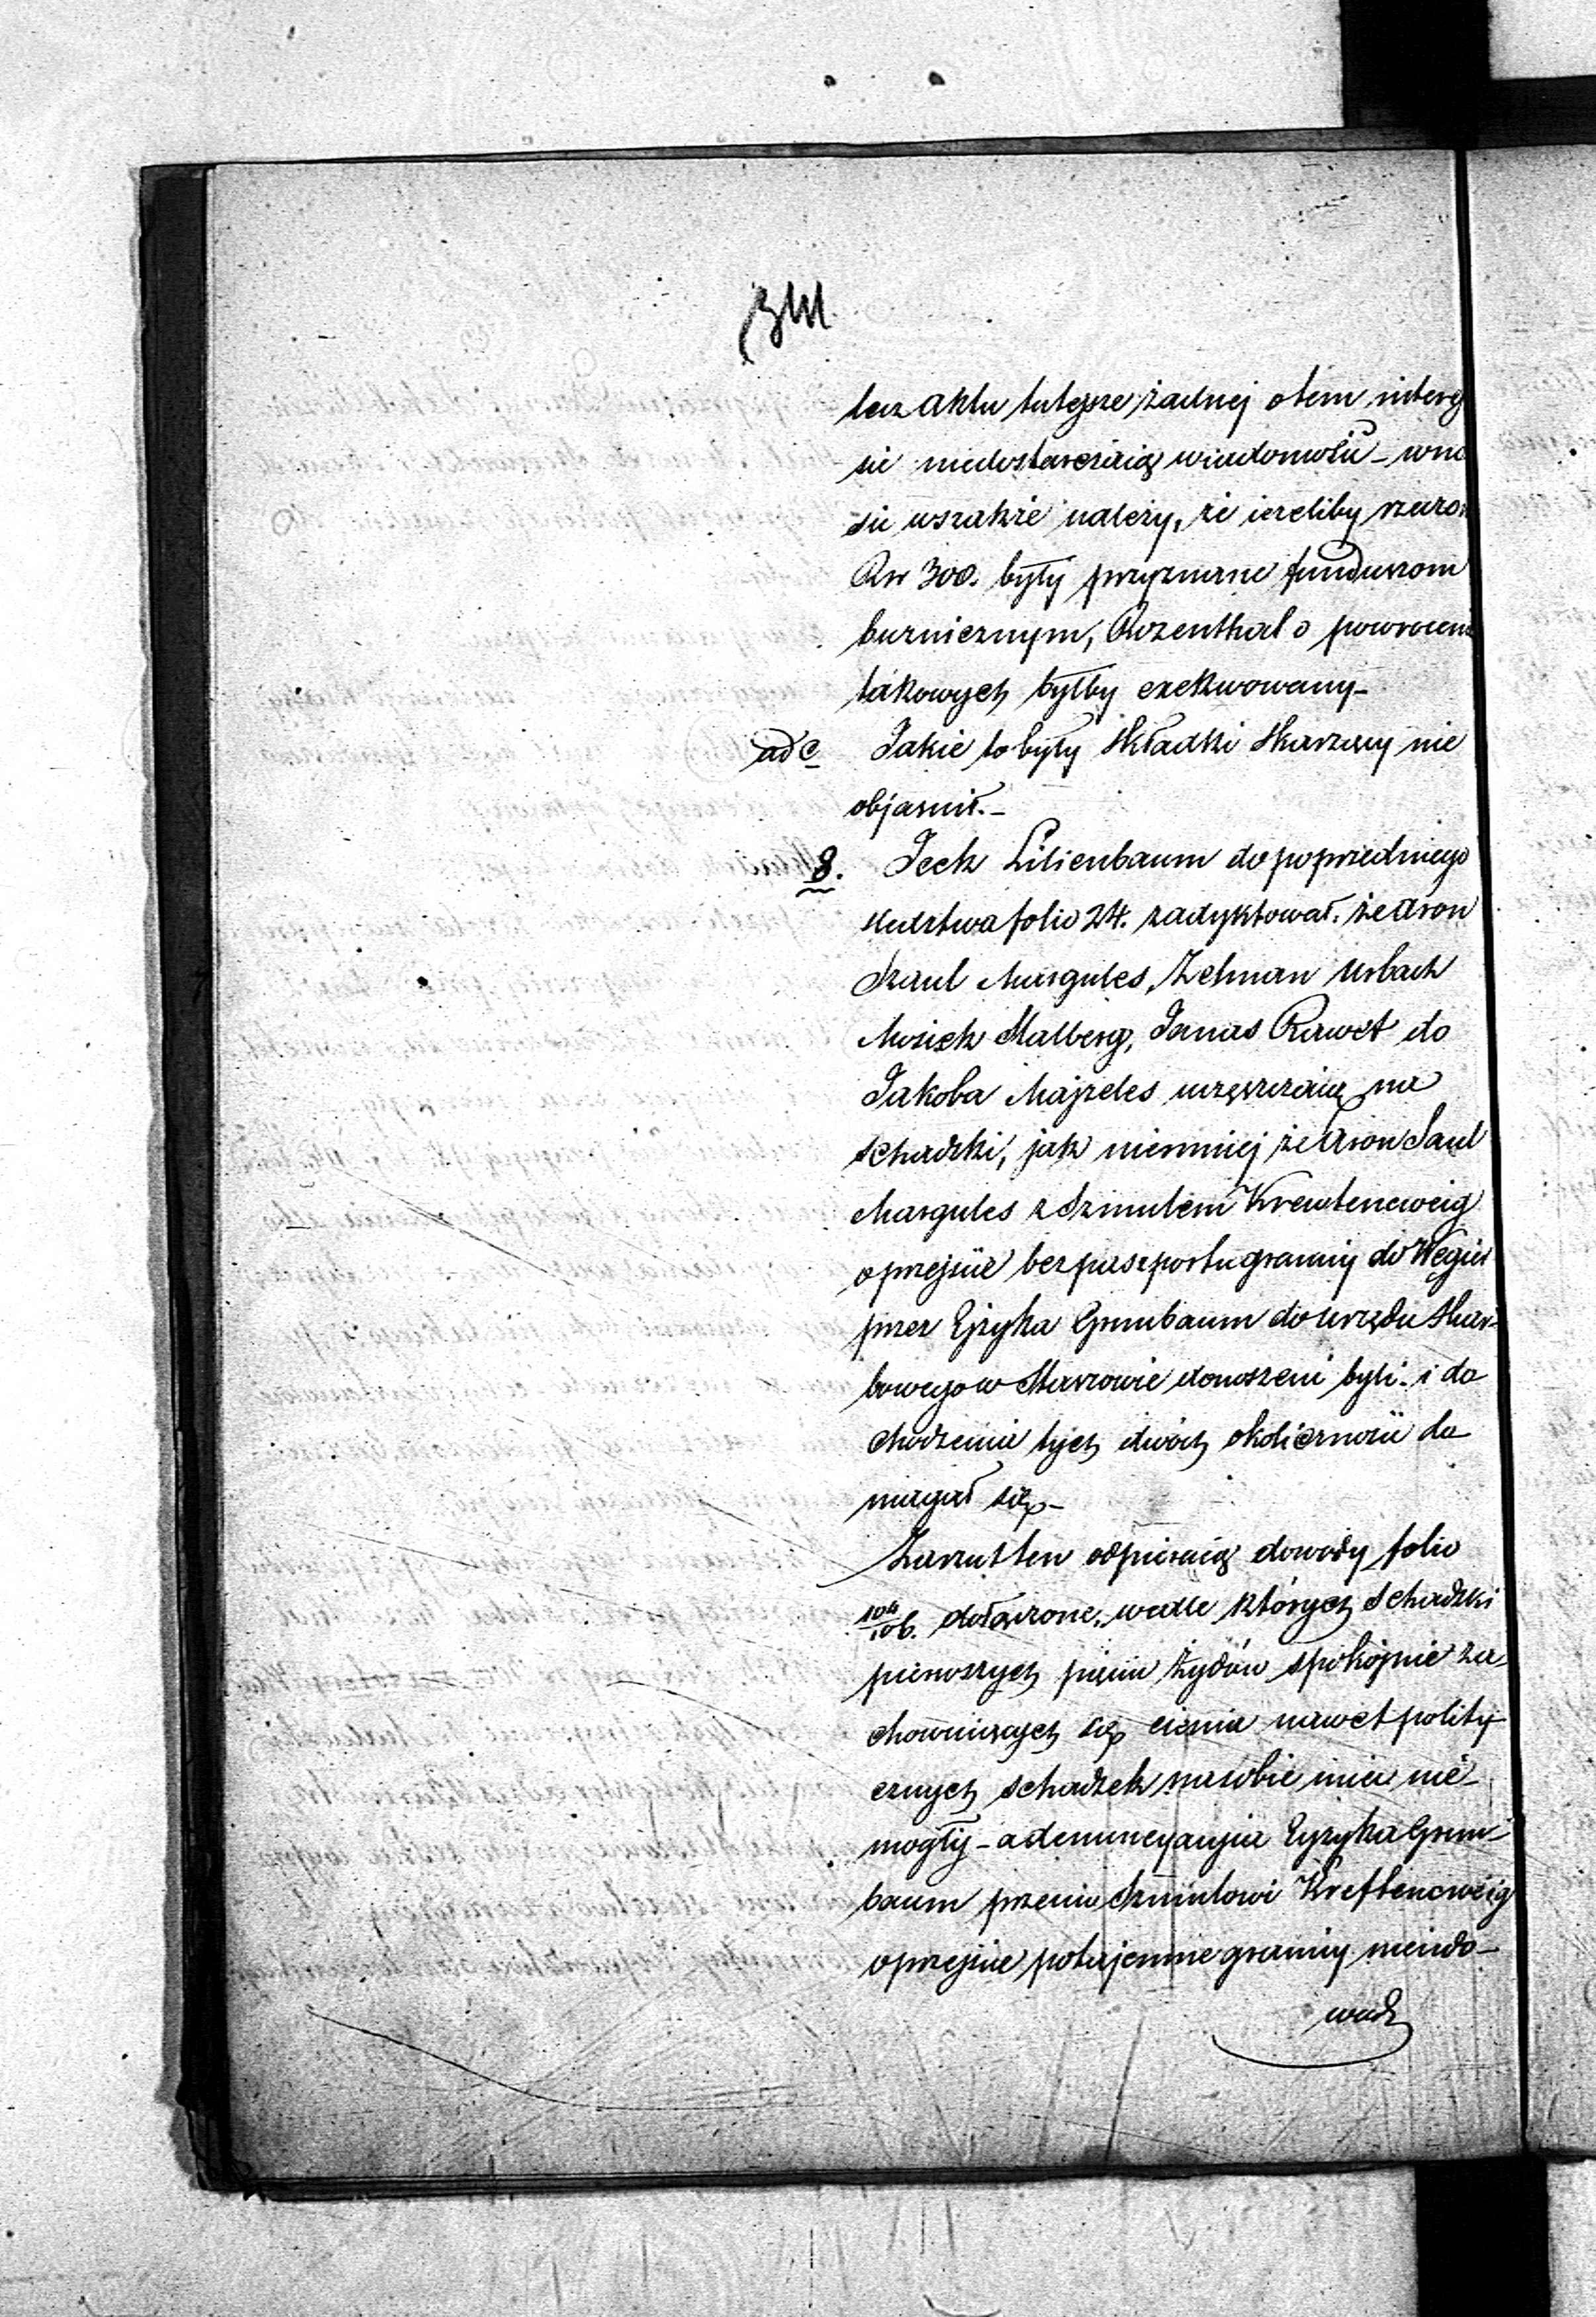 lecz akta tutejsze żadnej o tem intere
sie niedostarczaią wiadomości – wno
sić wszakże należy, że ieżeliby rzeczo
Rsr 300. były przyznane funduszom
bużnicznym, Rozenthal o powroceni
takowych byłby exekwowany –
ad c Jakie to były składki skarzący nie
objasnił. –
8. Jcek Lilienbaum do poprzedniego
sledztwa folio 24. zadyktował. że Aron
Szaul Margules, Zelman Urbach
Mosiek Stalberg, Jonas Rawet do
Jakoba Majzeles uczęszczaią na
schadzki, jak niemniej że Aron Saul
Margules z Szmulem Kreutencweig
o przejście bez paszportu granicy do Węgier
przez Eyzyka Grunbaum do urzędu Skar-
bowego w donoszeni byli. i do
chodzenia tych dwóch okoliczności do
magał się –
Zarzut ten odpieraią dowody folio
104/106. dołączone, wedle których schadzki
pierwszych pięciu Żydów spokojnie za-
chowuiących się cienia nawet polity-
cznych schadzek na sobie mieć nie-
mogły – a denuncyacyia Eyzyka Grun-
baum przeciw Szmulowi Kreftencweig
o przejście potajemnie granicy nieudo-
wod